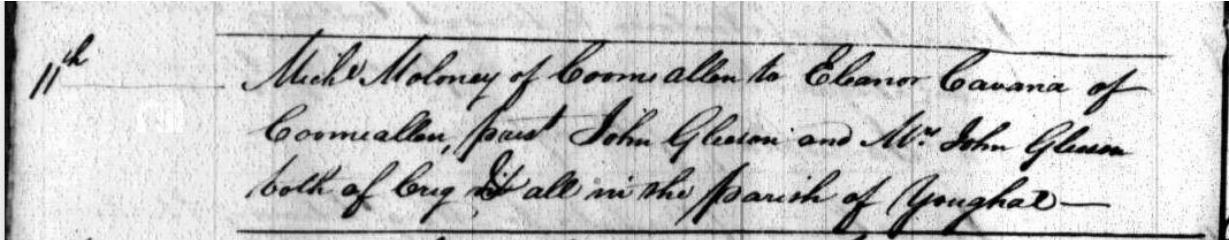 11th Michl Moloney of Coomeallen to Eleanor Cavana of
Coomeallen, prest John Gleeson and Mrs John Gleeson
both of Creg all in the parish of Youghal —